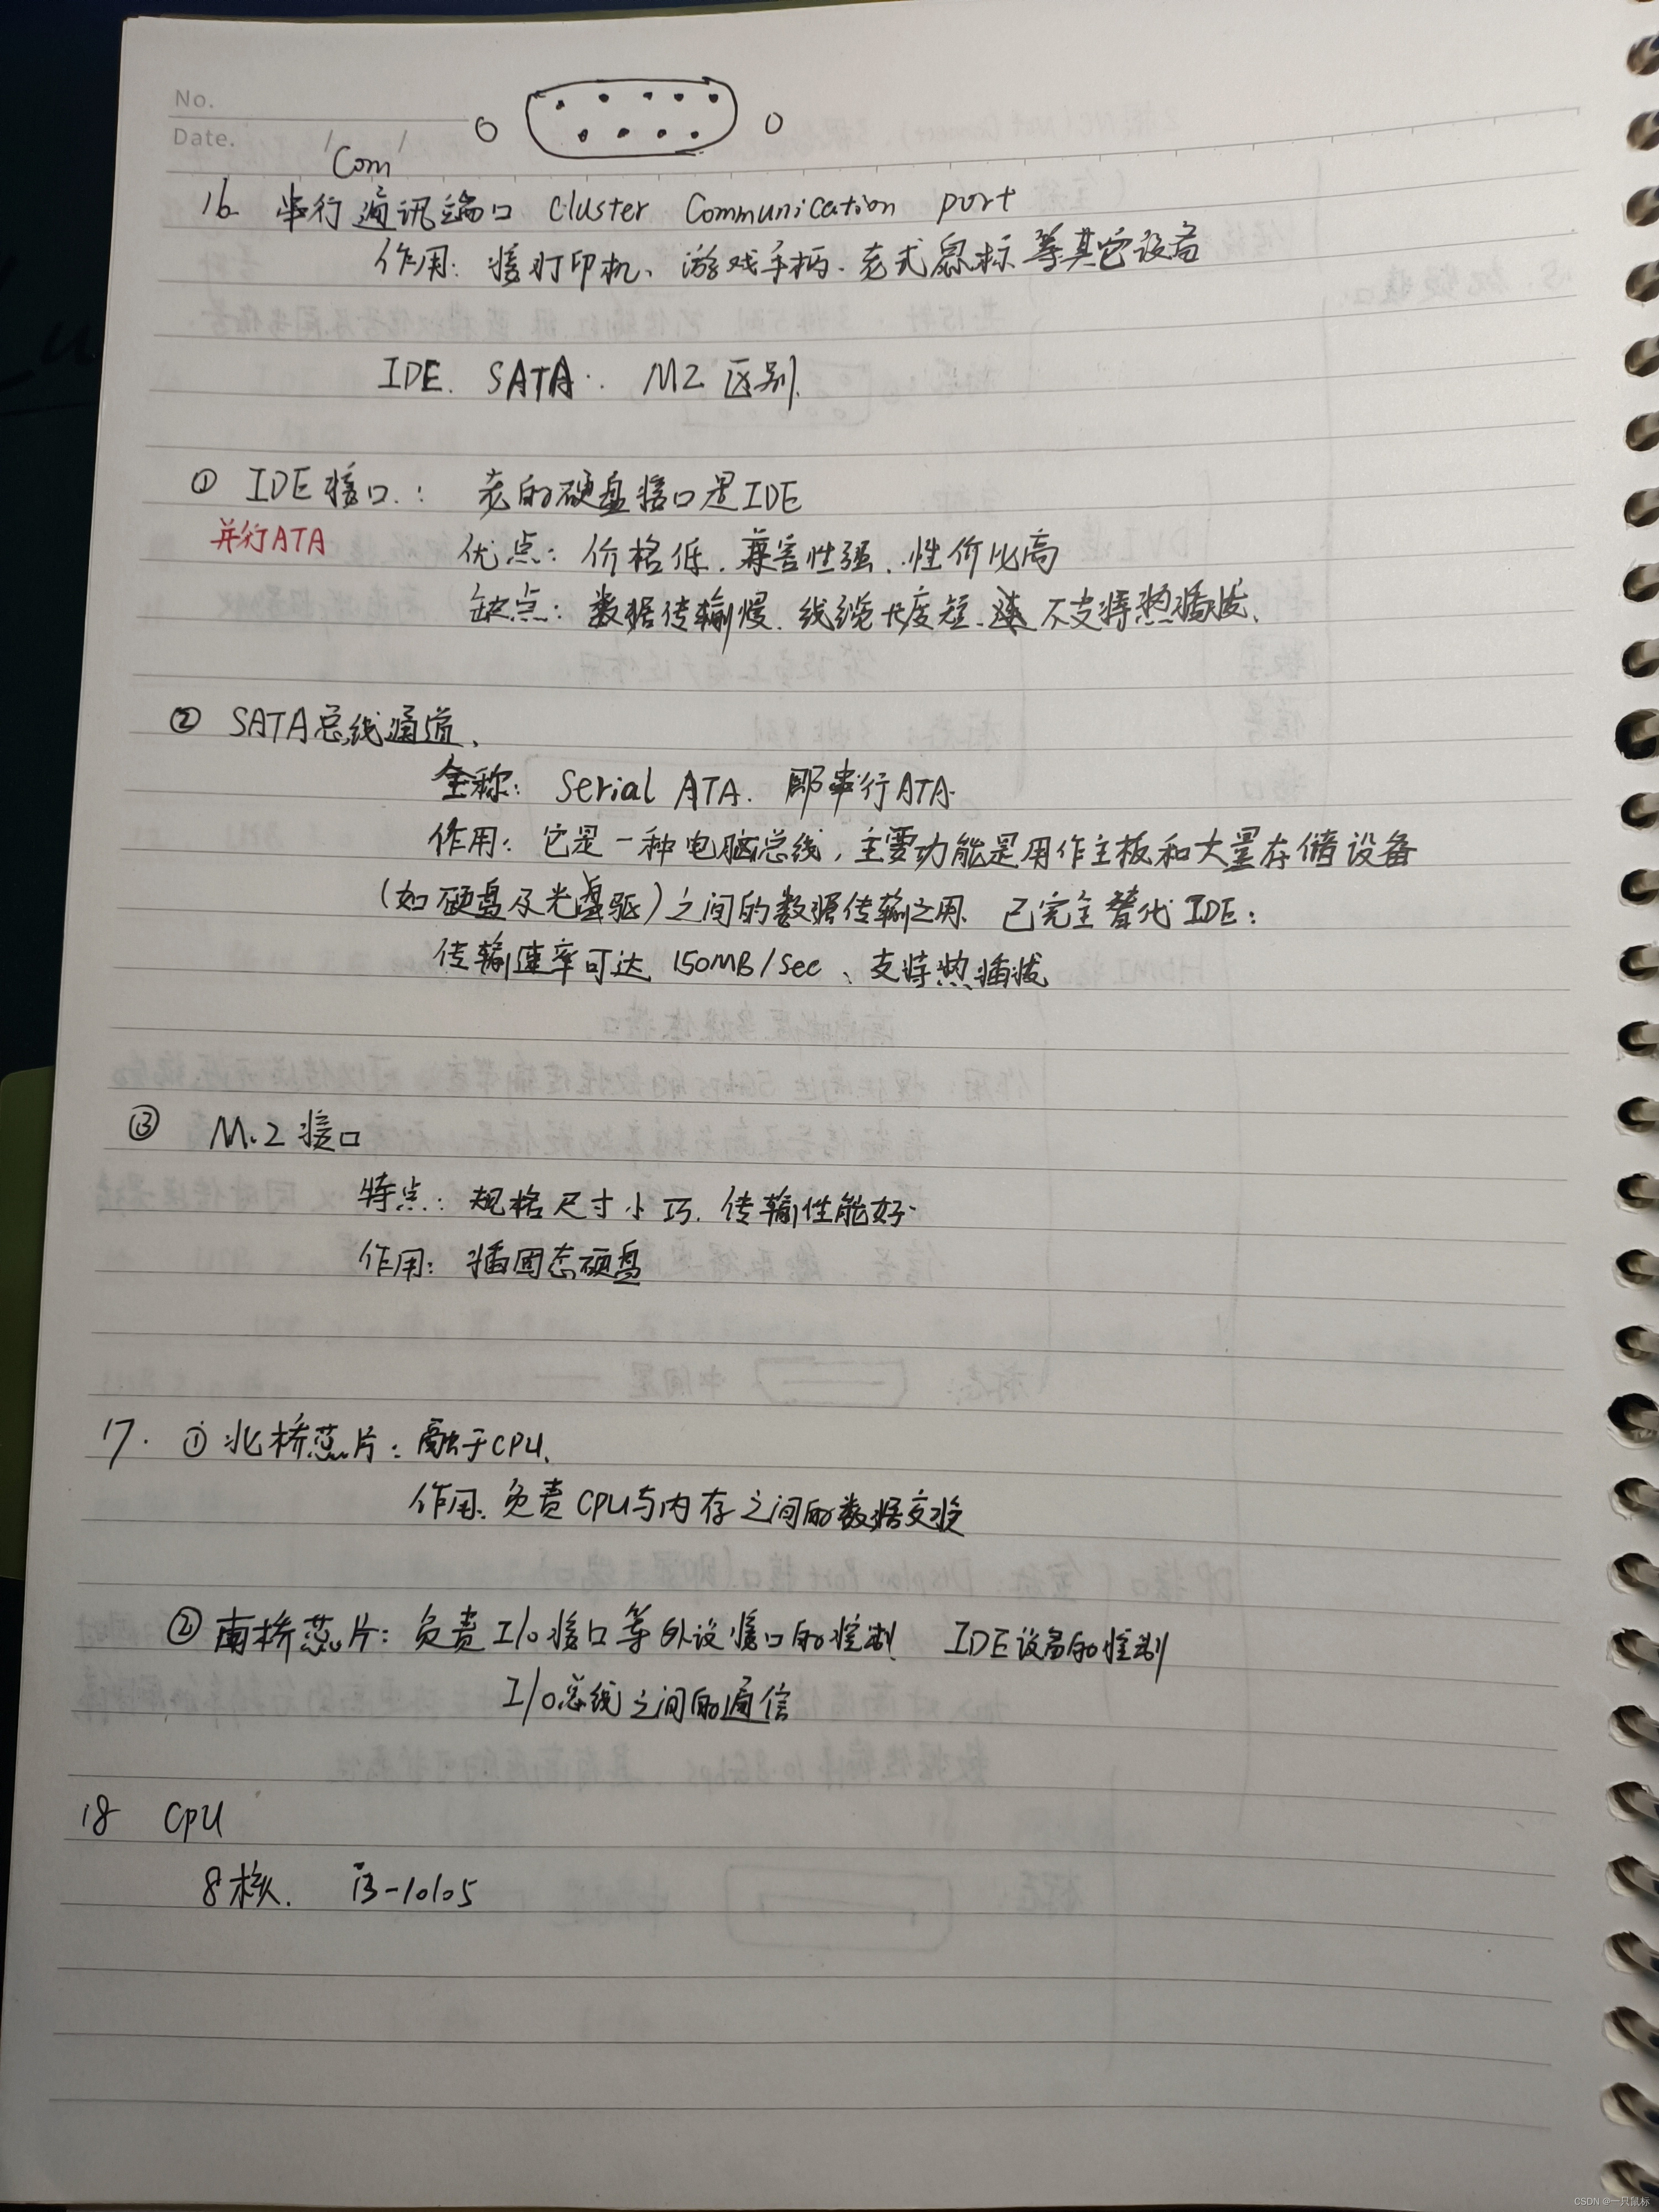 No.
Date. / /
Com
16 串行通讯端口 Cluster Communication port
作用: 接打印机、游戏手柄、老式鼠标等其它设备
IDE. SATA. M2 区别.
① IDE 接口.: 老的硬盘接口是IDE
并行ATA
优点: 价格低. 兼容性强. 性价比高
缺点: 数据传输慢. 线缆长度短. 不支持热插拔.
② SATA总线通道、
全称: Serial ATA. 即串行ATA.
作用: 它是一种电脑总线, 主要功能是用作主板和大量存储设备
(如硬盘及光盘驱)之间的数据传输之用. 已完全替代IDE:
传输速率可达 150MB/Sec、支持热插拔
③ M.2 接口
特点: 规格尺寸小巧. 传输性能好.
作用: 插固态硬盘
17. ① 北桥芯片: 融于CPU.
作用. 负责CPU与内存之间的数据交换
② 南桥芯片: 负责I/O接口等外设接口的控制 IDE设备的控制
I/O总线之间的通信
18 CPU
8核. i3-10105
CSDN @一只鼠标